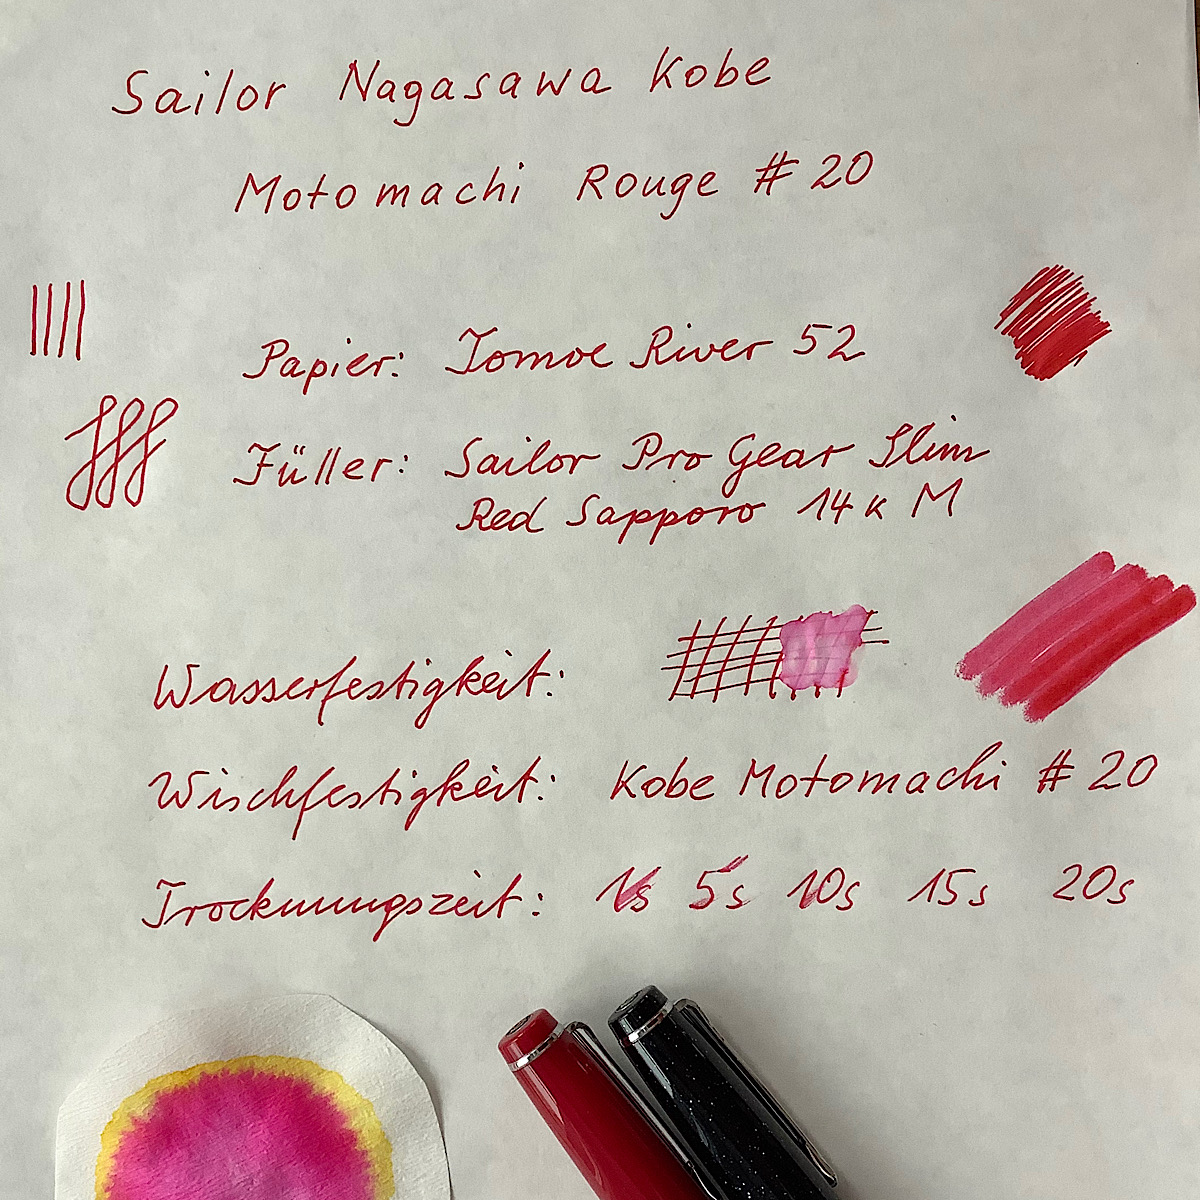 Sailor Nagasawa Kobe
Motomachi Rouge # 20
Papier: Tomoe River 52
Füller: Sailor Pro Gear Slim
Red Sapporo 14k M
Wasserfestigkeit:
Wischfestigkeit: Kobe Motomachi # 20
Trocknungszeit: 1s 5s 10s 15s 20s